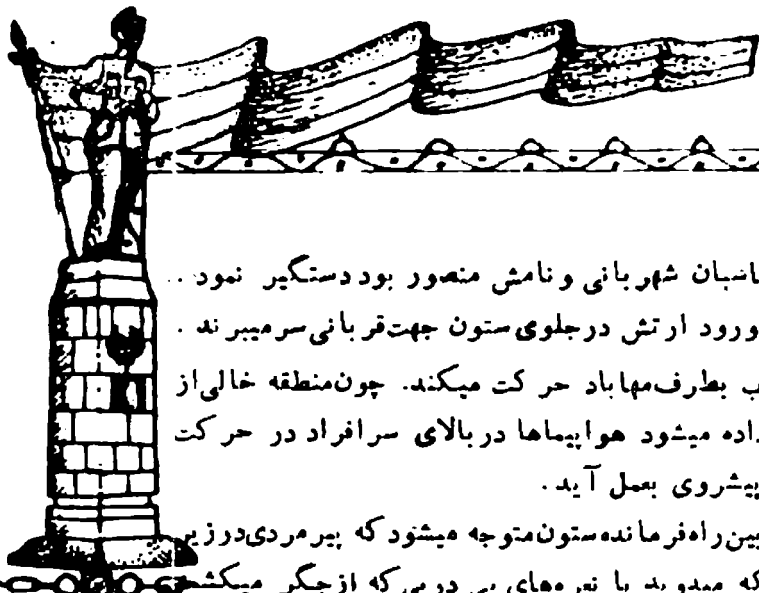 اسبان شهربانی و نامش منصور بود دستگیر نمود ..
ورود ارتش درجلوی ستون جهت قربانی سر میبرند .
ب بطرف مهاباد حرکت میکند. چون منطقه خالی از
داده میشود هواپیماها در بالای سر افراد در حرکت
پیشروی بعمل آید .
بین راه فرمانده ستون متوجه میشود که پیر مردی در زیر
که میدوید با نعره‌های پی در پی که از جگر میکشید